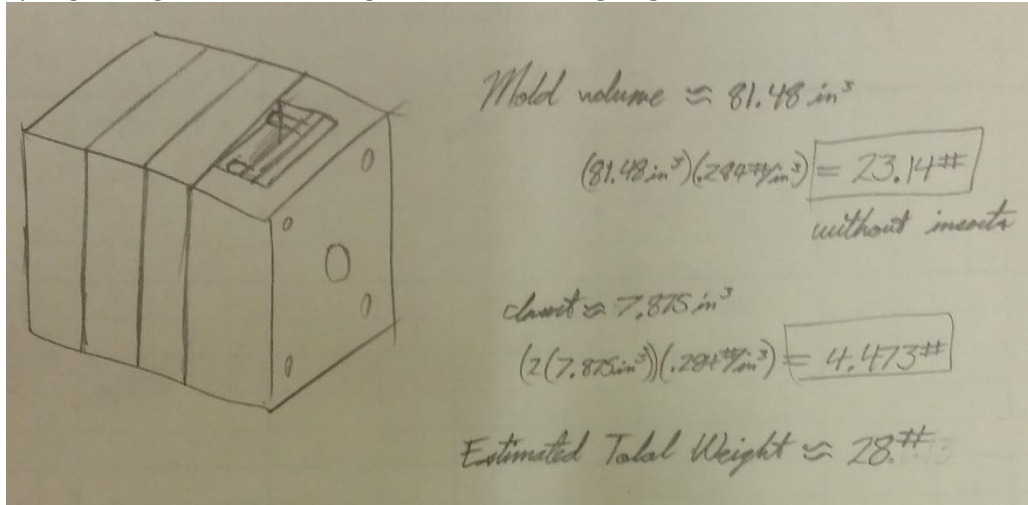 Mold volume ≈ 81.48 in³
(81.48 in³)(.284 #/in³) = 23.14#
without inserts
≈ 7.875 in³
(2(7.875in³))(.284 #/in³) = 4.473#
Estimated Total Weight ≈ 28.#